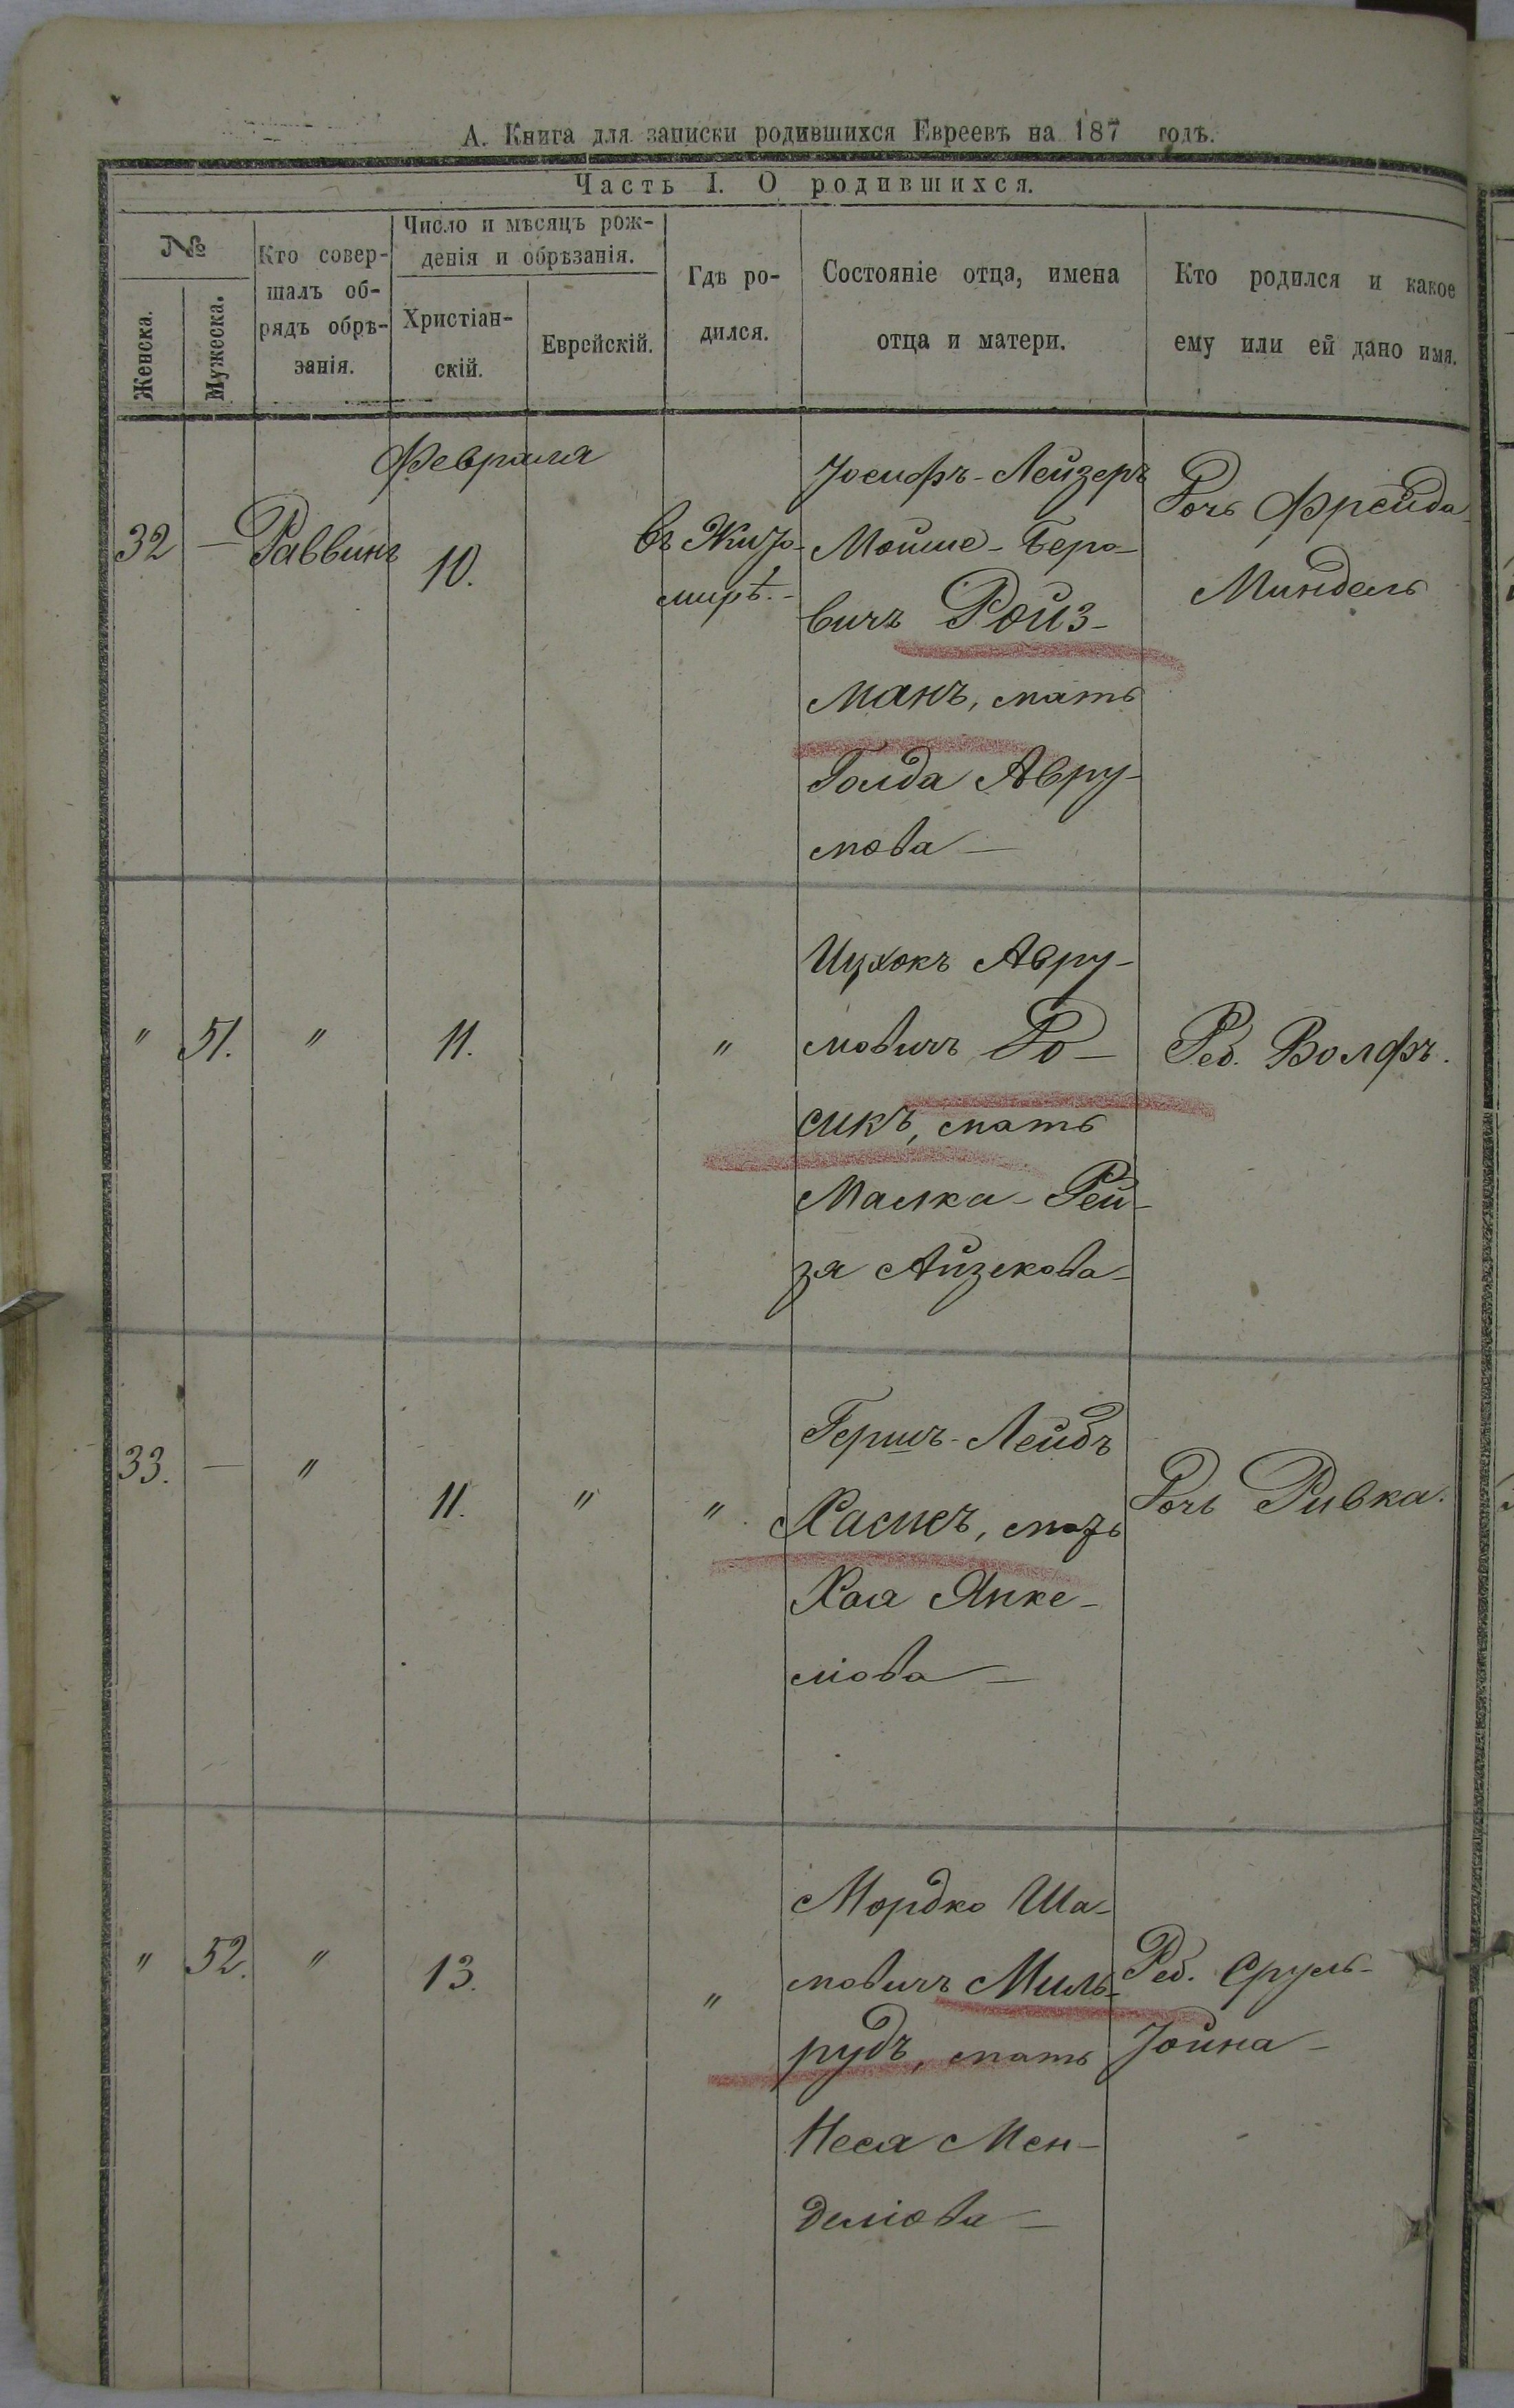 А. Книга для записки родившихся Евреевъ на 187 годъ.
Часть I. О родившихся.
№
Женска.
Мужеска.
Кто совер-
шалъ об-
рядъ обрѣ-
занія.
Число и мѣсяцъ рож-
денія и обрѣзанія.
Христіан-
скій.
Еврейскій.
Гдѣ ро-
дился.
Состояніе отца, имена
отца и матери.
Кто родился и какое
ему или ей дано имя.
Февраля
32
—
Раввинъ
10.
въ Жито-
мирѣ.-
Іосифъ-Лейзеръ
Мойше-Беро-
вичъ Ройз-
манъ, мать
Голда Авру-
мова —
Дочь Фрейда
Миндель
"
51.
"
11.
"
Ицхокъ Авру-
мовичъ Ро-
сикъ, мать
Малка-Рей-
зя Айзекова-
Реб. Волфъ.
33.
—
"
11.
"
"
Гершъ-Лейбъ
Хасисъ, мать
Хая Янке-
ліова —
Дочь Ривка.
"
52.
"
13.
"
Мордко Ша-
мовичъ Миль-
рудъ, мать
Неся Мен-
деліова —
Реб. Сруль-
Іойна —